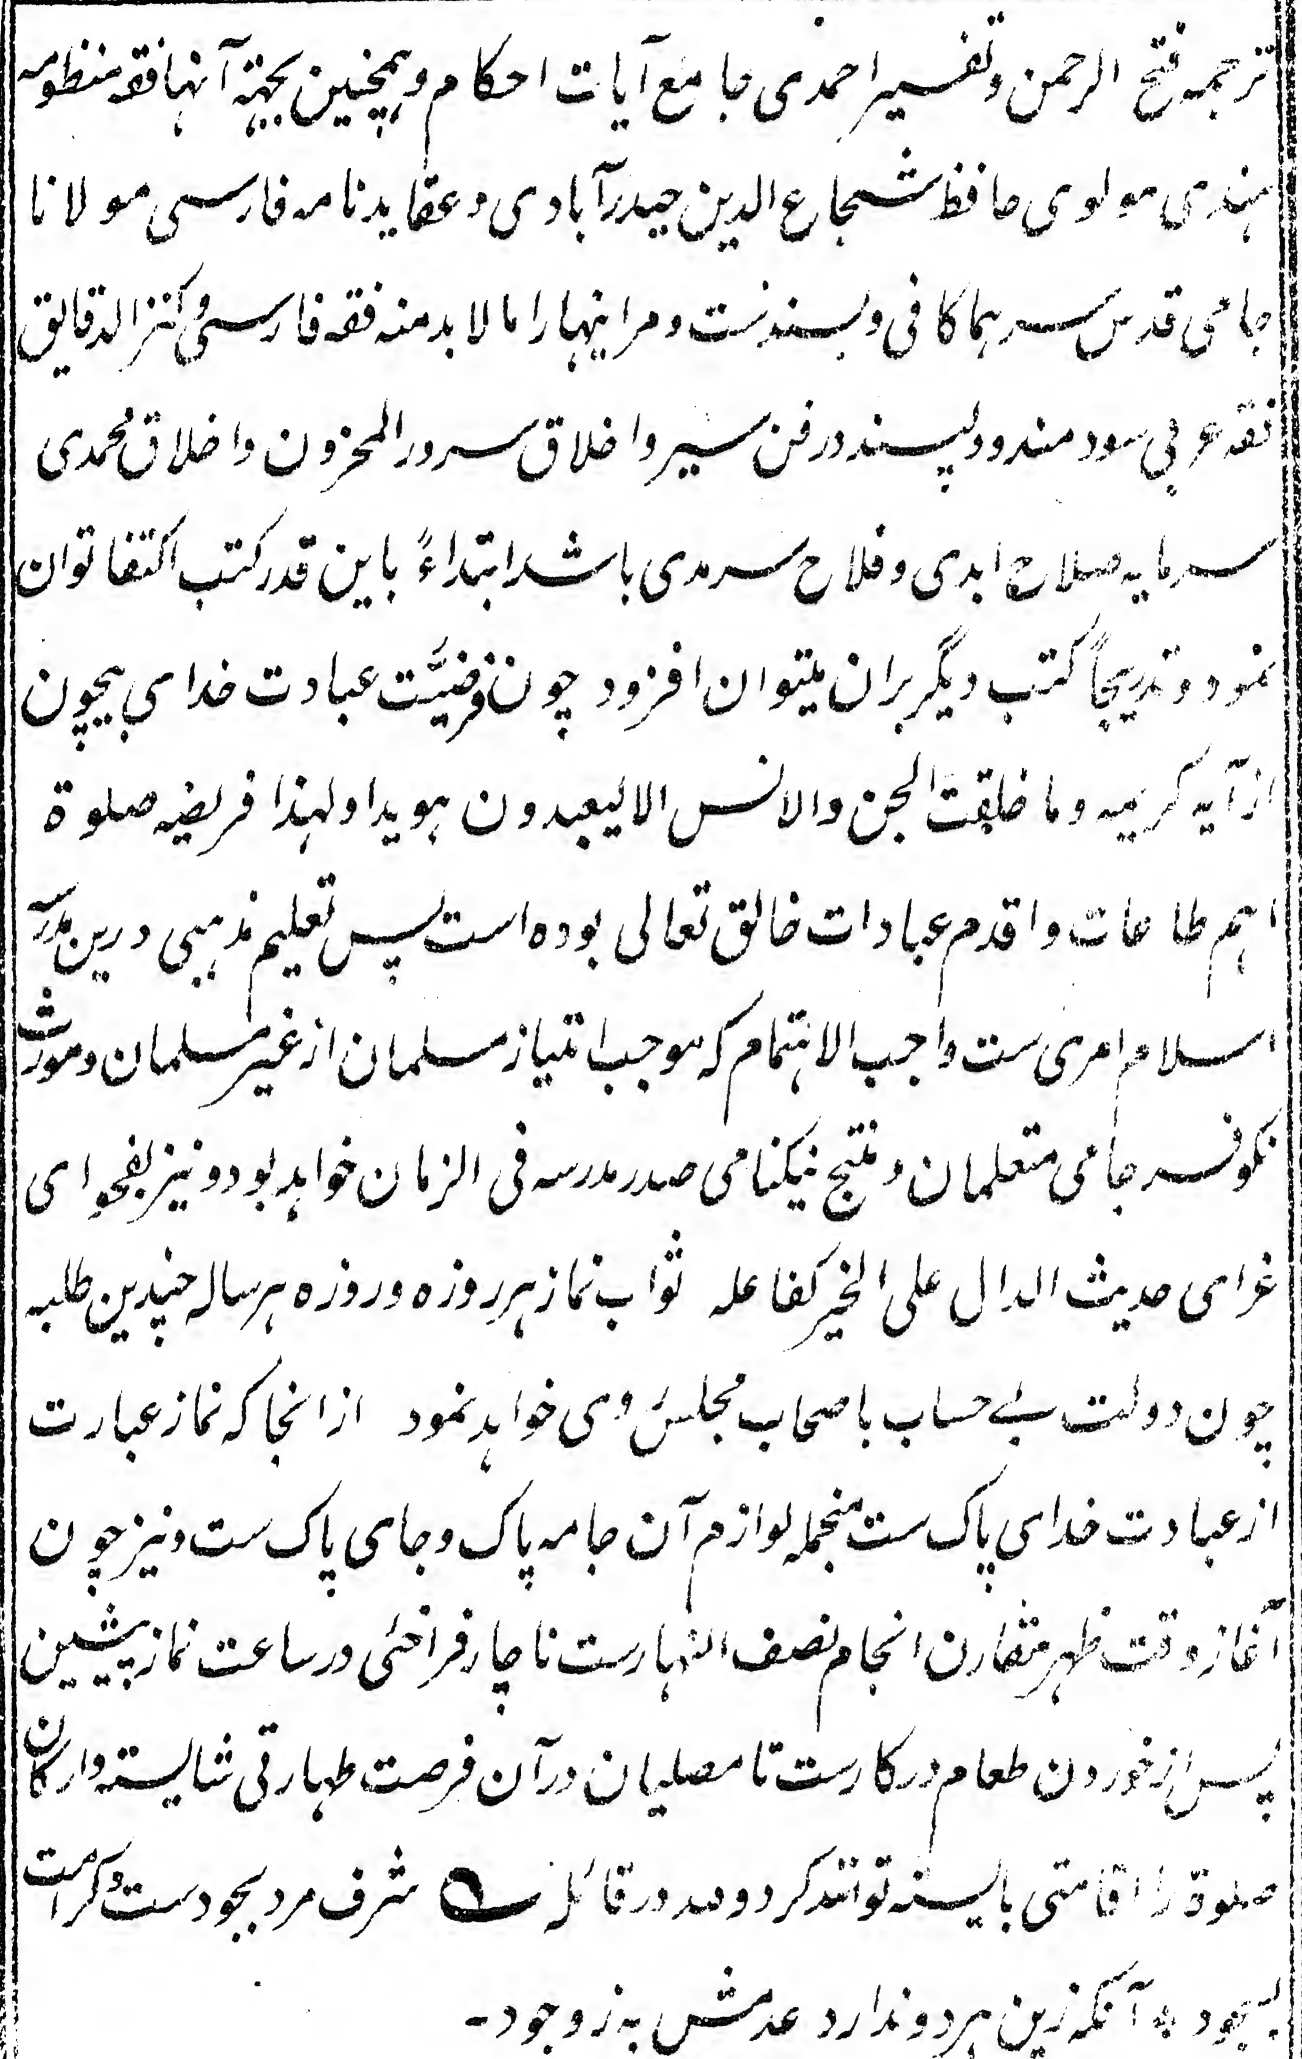 ترجمه فتح الرحمن و تفسیر احمدی جامع آیات احکام و همچنین بجهتہ آنها فقہ منظومہ
ہندی مولوی حافظ شجاع الدین حیدرآبادی و عقایدنامہ فارسی مولانا
جامی قدس سرہما کافی و بسندست و مراینہا را مالابدمنہ فقہ فارسی و کنز الدقایق
فقہ عربی سودمند و دلپسند در فن سیر و اخلاق سرور المحزون و اخلاق محمدی
سرمایہ صلاح ابدی و فلاح سرمدی باشد ابتداءً باین قدر کتب اکتفا توان
نمود و تدریجاً کتب دیگر بران میتوان افزود چون فرضیّت عبادت خدای بیچون
از آیہ کریمہ وما خلقت الجن والانس الا لیعبدون ہویدا و لہذا فریضہ صلوة
اہم طاعات و اقدم عبادات خالق تعالی بوده است پس تعلیم مذہبی درین مدرسہ
اسلام امری ست واجب الاہتمام کہ موجب امتیاز مسلمان از غیر مسلمان و مورث
نکوفرجامی متعلمان و منتج نیکنامی صدر مدرسہ فی الزمان خواہد بود و نیز بفحوای
غرای حدیث الدال علی الخیر کفاعلہ ثواب نماز ہرروزه و روزه ہرسالہ چندین طلبہ
چون دولت بےحساب باصحاب مجلس وی خواہد نمود ازانجا کہ نماز عبارت
از عبادت خدای پاک ست منجملہ لوازم آن جامہ پاک و جای پاک ست و نیز چون
آغاز وقت ظہر مقارن انجام نصف النہارست ناچار فراخئی در ساعت نماز پیشین
پس از خوردن طعام در کارست تا مصلیان در آن فرصت طہارتی شایستہ و ارکان
صلوة را اقامتی بایستہ توانند کرد و للہ در قائلہ ؎ شرف مرد بجودست و کرامت
بسجود ٭ آنکہ زین ہر دو ندارد عدمش بہ ز وجود ۔